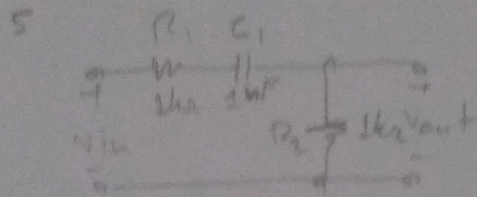 5
R1 C1
1kΩ 1nF
+ +
Vin R2 1kΩ Vout
- -